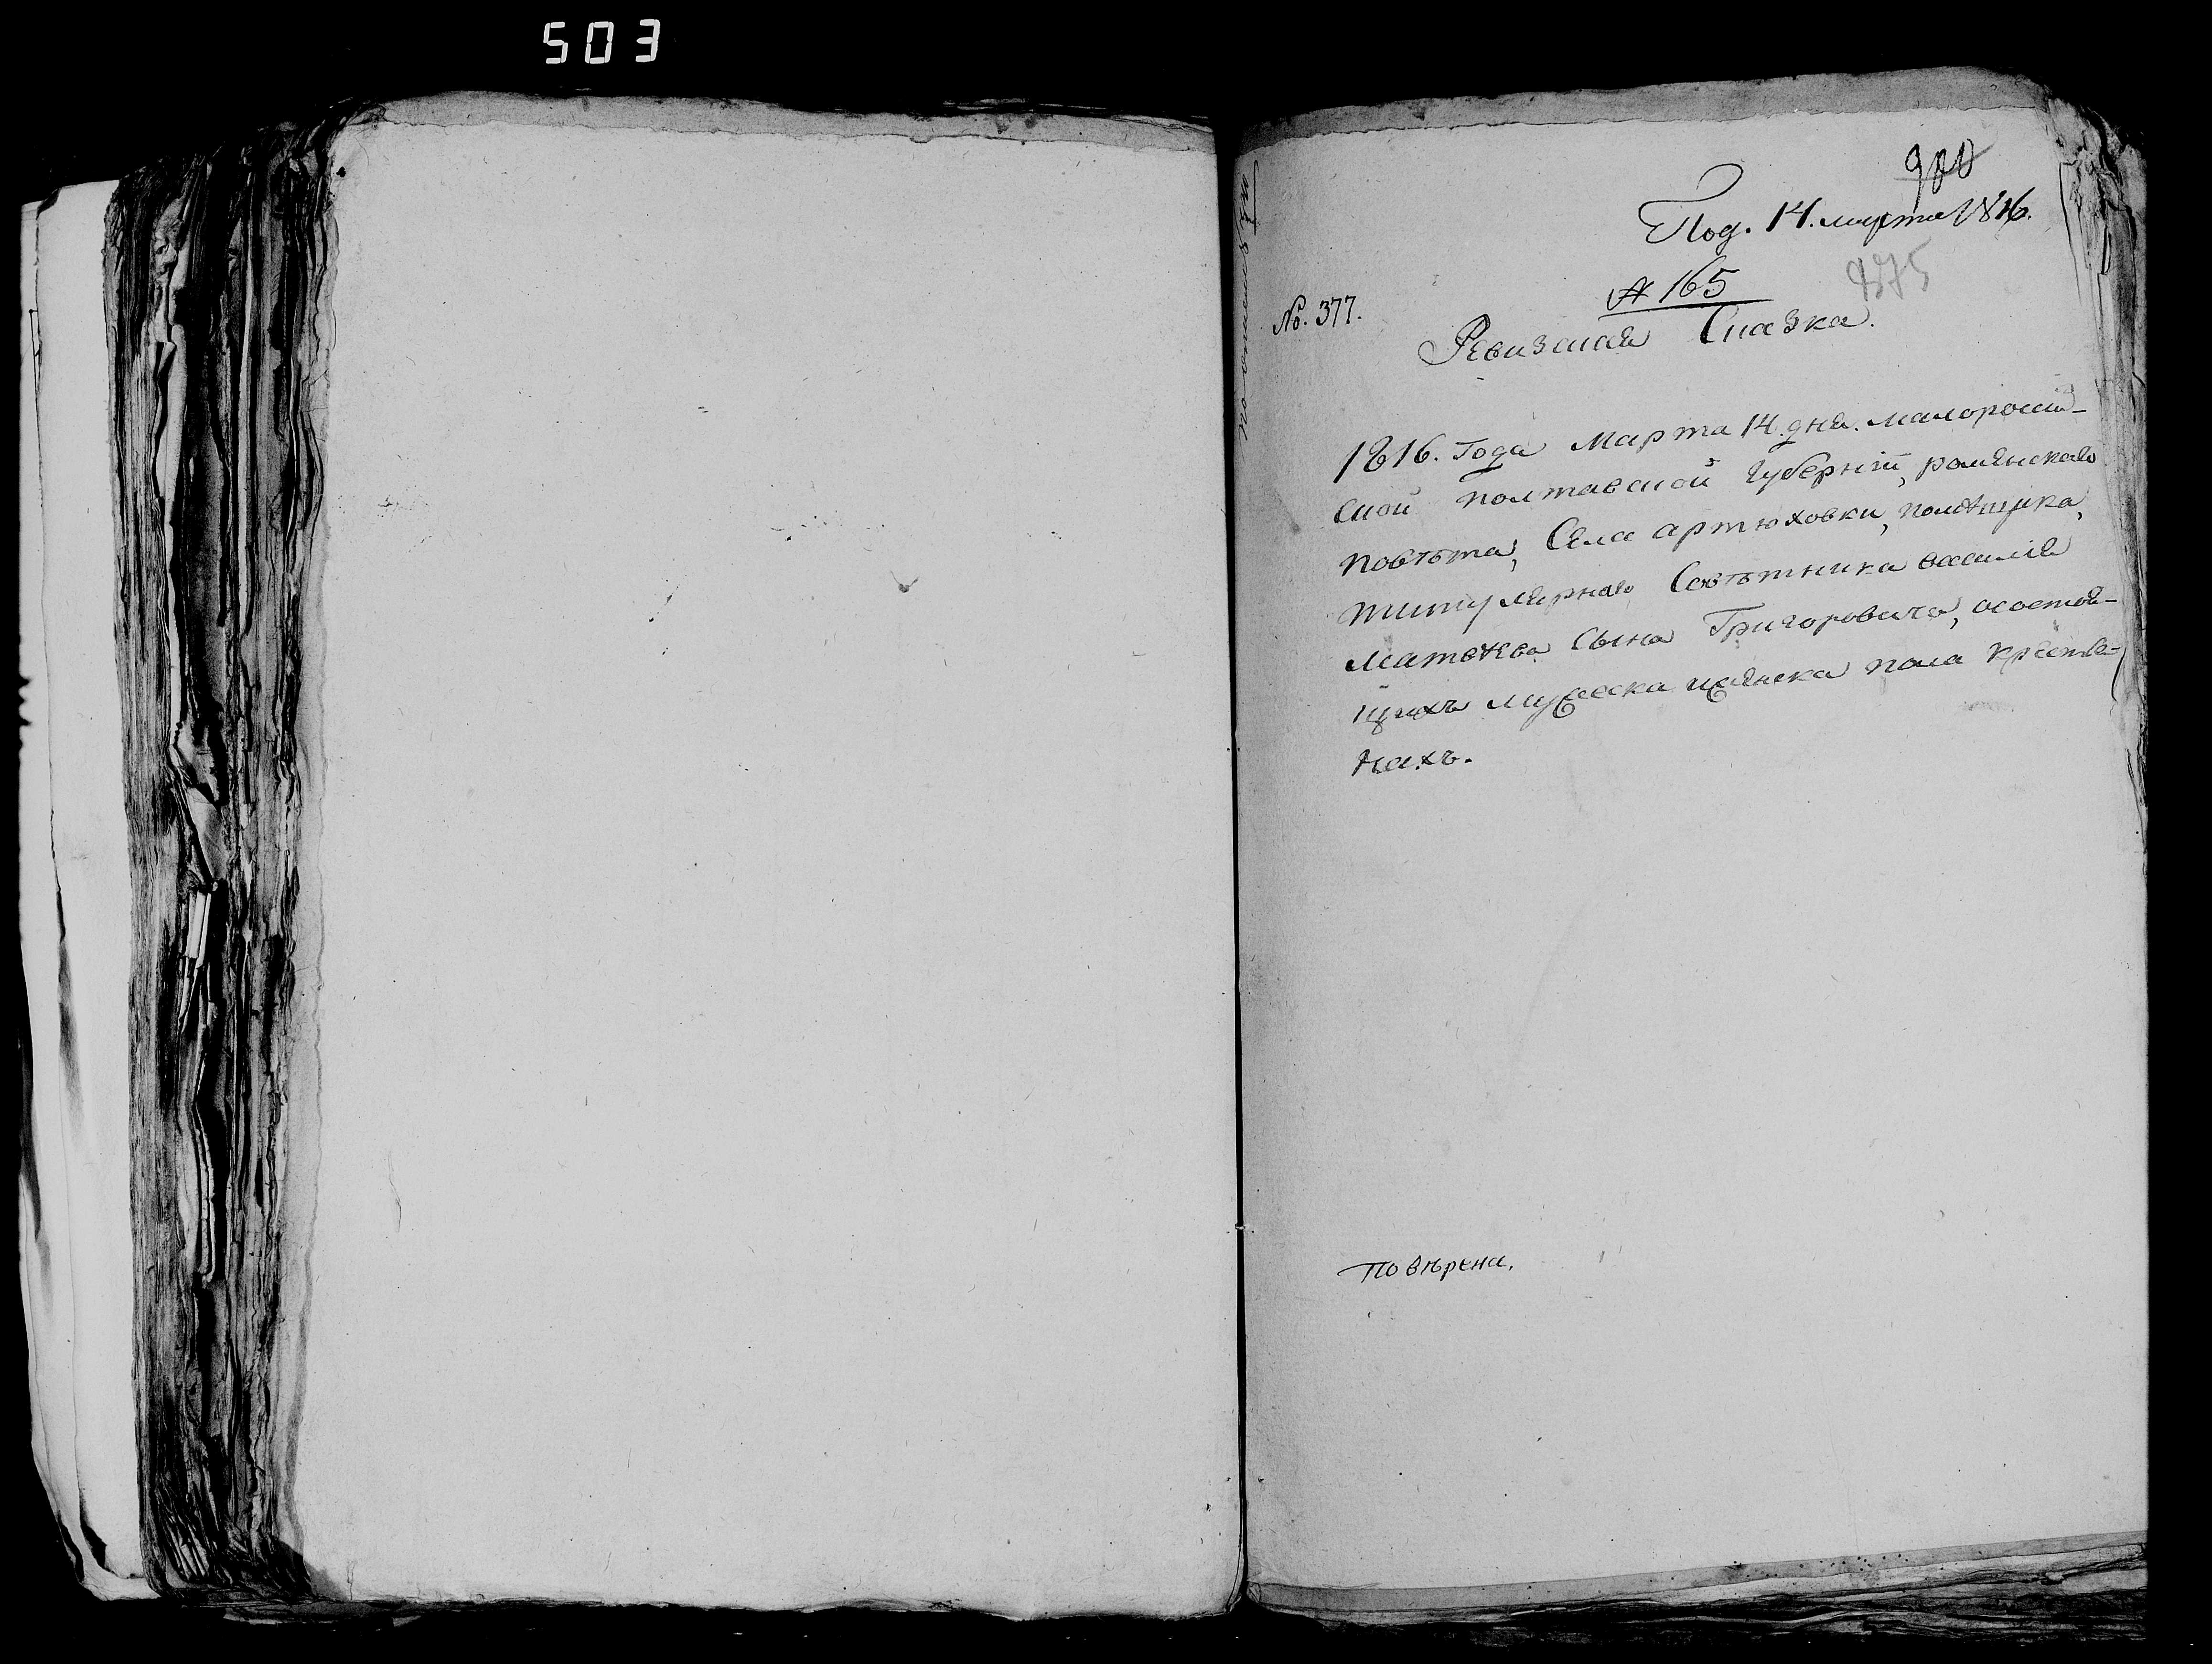 503
980
Под. 14. марта 1816.
№ 165
975
№. 377.
Ревизская Сказка.
1816. Года Марта 14. дня. малороссий-
ской полтавской губерніи, роменскаго
повѣта, Села артюховки, помѣщика,
титулярнаго Совѣтника василія
матвѣева Сына Григоровича, осостоя-
щихъ мужеска иженска пола крестья-
нахъ.
Повѣрена.